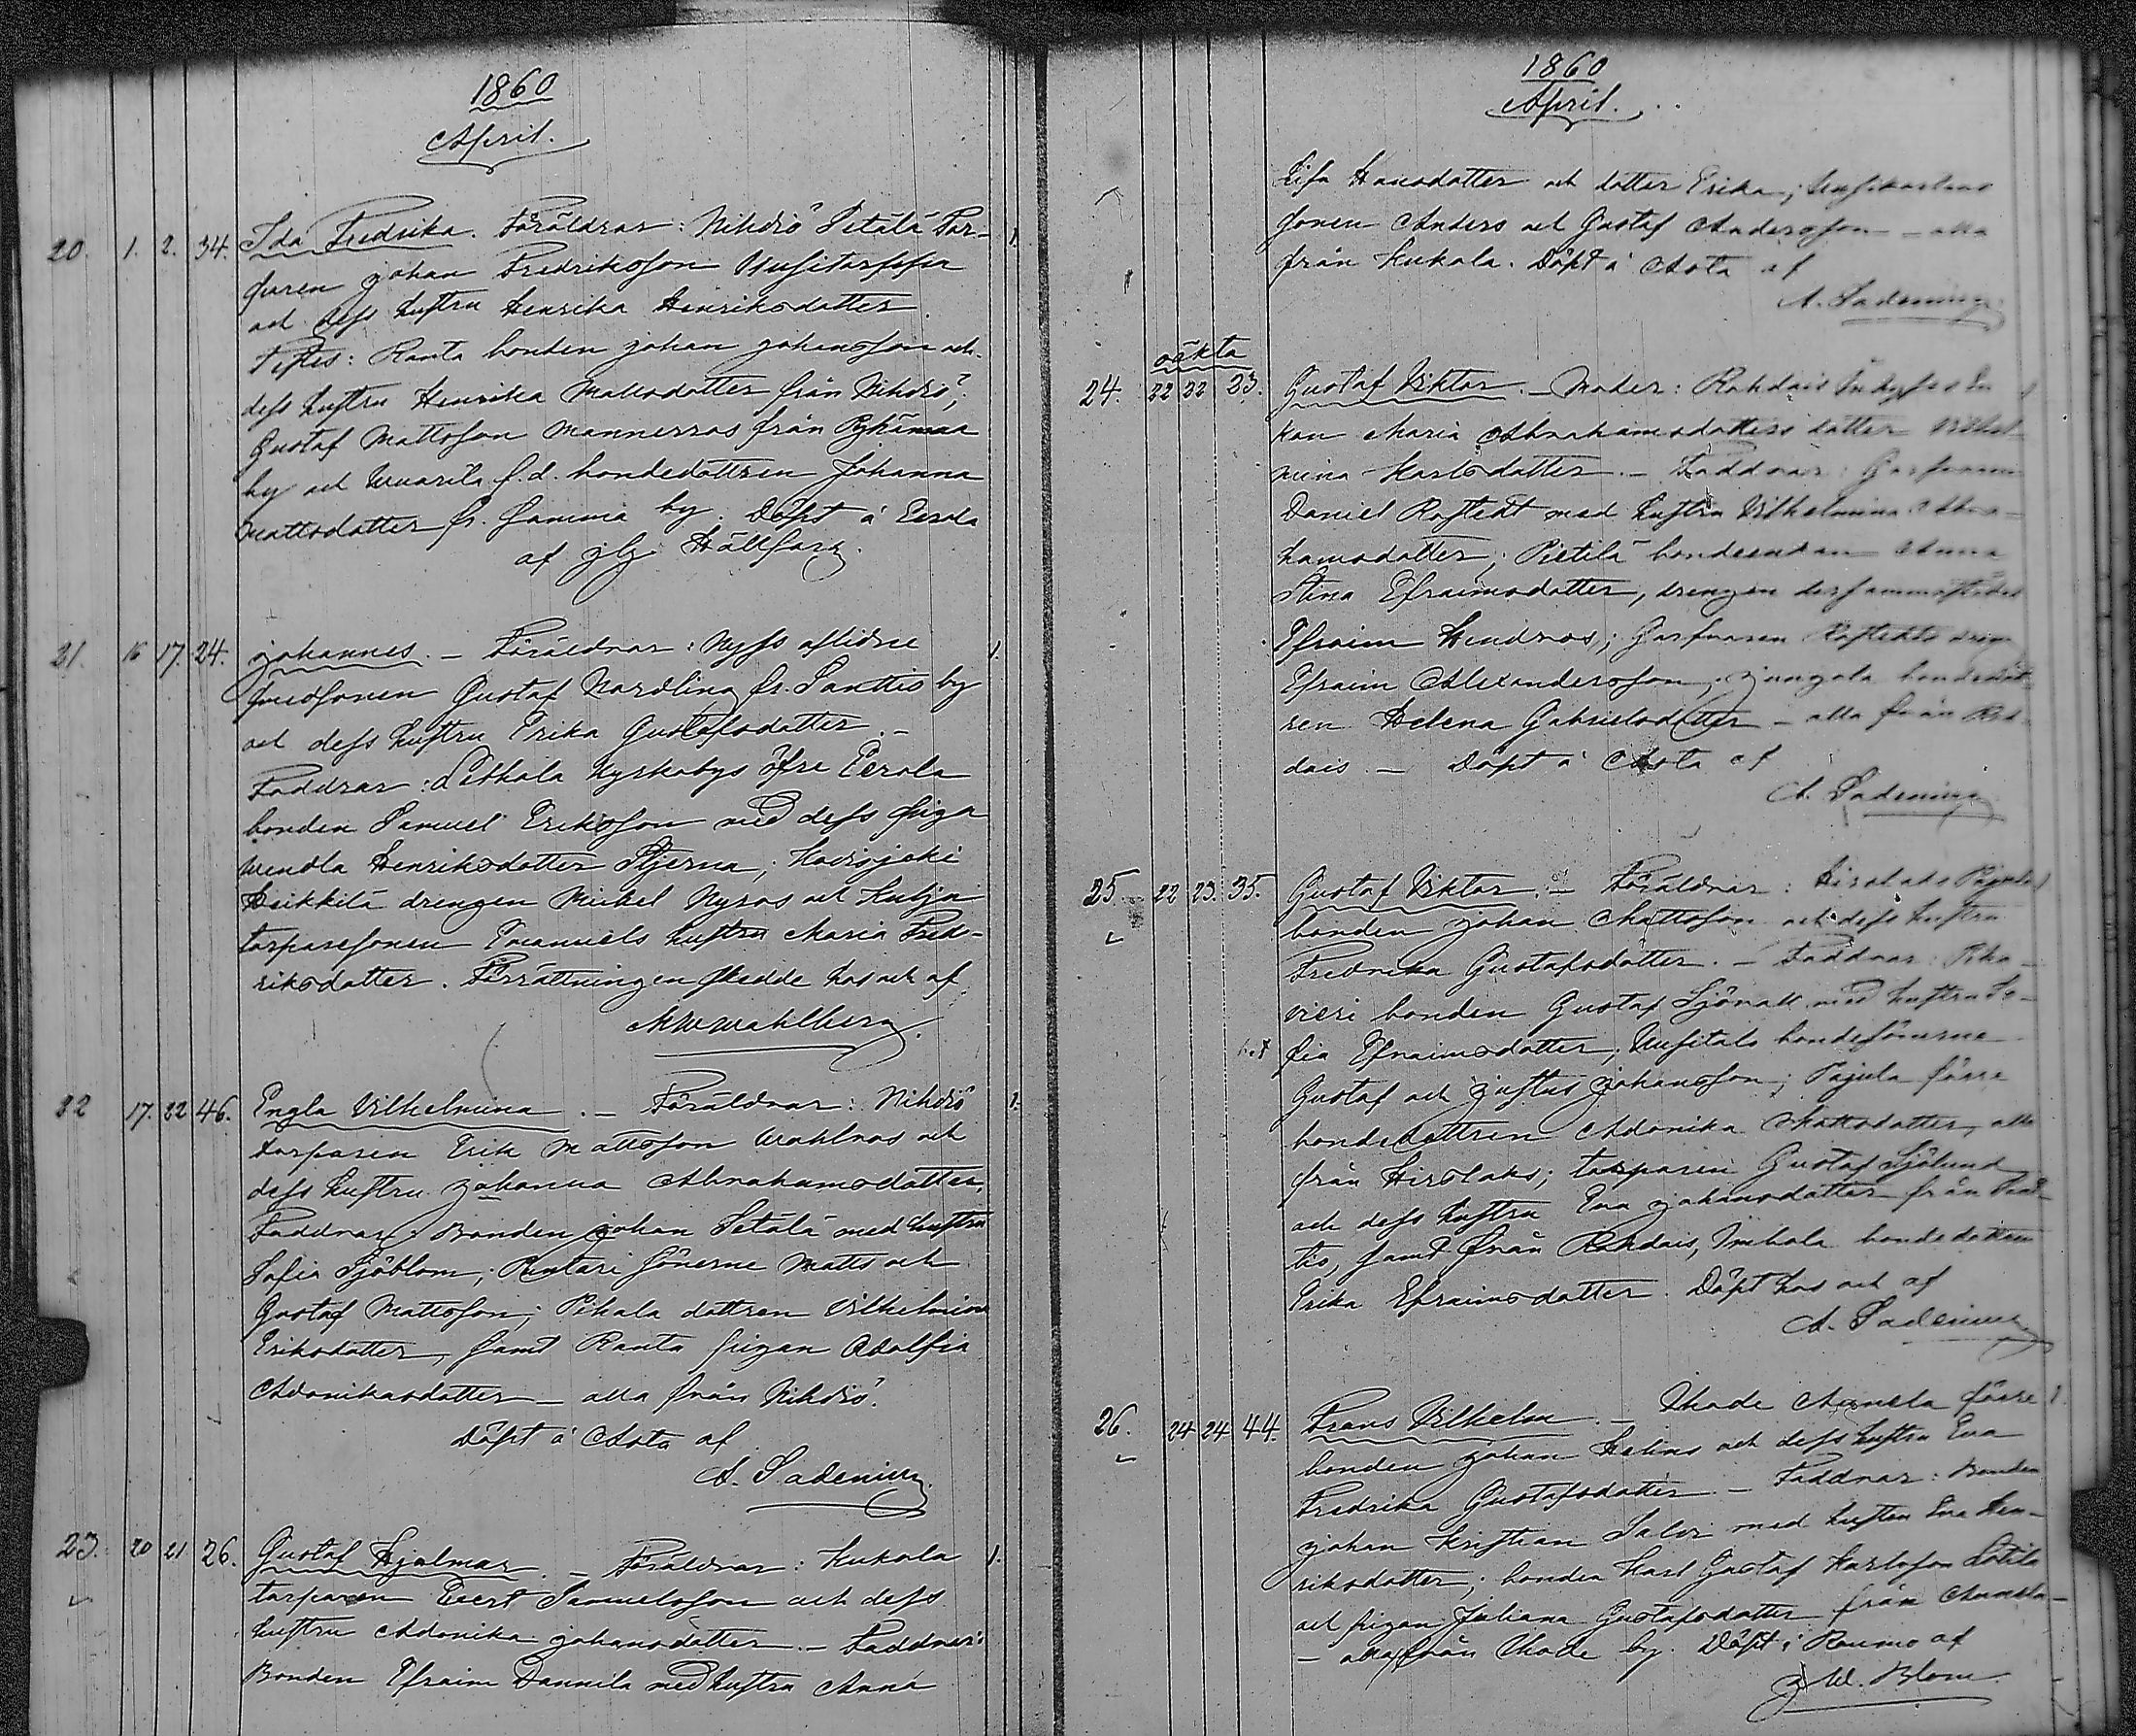 1860
April.
20. 1. 2. 34. Ida Fredrika. Föräldrar: Nihdiö Setälä Tor-
paren Johan Fredriksson Uusitorppa
och dess hustru Henrika Henriksdotter.
Testes: Ranta bonden Johan Johansson och
dess hustru Henrika Mattsdotter från Nihdiö;
Gustaf Mattsson Mannerros från
by och f.d. bondedottren Johanna
Mattsdotter fr. Samma by. Döpt å Eerola
af Hällfors.
21. 16 17. 24. Johannes. – Föräldrar: Nyss aflidne
Gustaf Nordling fr. Santtio by
och dess hustru Erika Gustafsdotter. –
Faddrar: Letkala Kyrkobys öfre Eerola
bonden Samuel Eriksson med dess piga
Wendla Henriksdotter Stjerna;
Heikkilä drengen Mickel Nyros och
torparesonen Emanuels hustru Maria Fred-
riksdotter. Förrättningen skedde hos och af
Wahlberg.
22 17. 22 46. Engla Vilhelmina. – Föräldrar: Nihdiö
torparen Erik Mattsson Wahlros och
dess hustru Johanna Abrahamsdotter,
Faddrar: Bonden Johan Setälä med hustru
Sofia Sjöblom; Rintari sönerne Matts och
Gustaf Mattsson; Pihala dottren Vilhelmina
Eriksdotter, samt Ranta pigan Adolfia
Adamiksdotter – alla från Nihdiö.
Döpt å Asta af
A. Sadenius
23. 20 21 26. Gustaf Hjalmar. – Föräldrar: Kukola
torparen Evert Samuelsson och dess
hustru Adamika Johansdotter. – Faddrar:
Bonden Efraim Dannila med hustru Anna
1860
April.
Lisa Hansdotter och dotter Erika;
sonen Anders och Gustaf Andersson – alla
från Kukola. Döpt å Asta af
A. Sadenius
oäkta
24. 22 22 23. Gustaf Viktor. – Moder: Rohdais
kan Maria Abrahamsdotters dotter Vilhel-
mina Karlsdotter. – Faddrar: Garfvaren
Daniel Rostedt med hustru Vilhelmina Abra-
hamsdotter; Pietilä bondeenkan Anna
Stina Efraimsdotter, drengen dersammastädes
Efraim Hindros; Garfvaren Rostedts dreng
Efraim Alexandersson; Jungola bondedot-
ren Helena Gabrielsdotter – alla från Roh-
dais. – Döpt å Asta af
A. Sadenius
25. 22 23. 35. Gustaf Viktor. – Föräldrar: Hirslaks Pajula
bonden Johan Mattsson och dess hustru
Fredrika Gustafsdotter. – Faddrar:
bonden Gustaf Sjövall med hustru So-
fia Efraimsdotter, Uusitalo bondesönerne
Gustaf och Justus Johansson; Pajula förre
bondedottren Adamika Mattsdotter, alla
från Hirslaks; torparen Gustaf Sjölund
och dess hustru Eva Johansdotter från Sant-
tio, samt från Rohdais, Inhala bondedottren
Erika Efraimsdotter. Döpt hos och af
A. Sadenius
26. 24 24 44. Frans Vilhelm. – förre
bonden Johan Helins och dess hustru Eva
Fredrika Gustafsdotter. – Faddrar: Bonden
Johan Kristian Salvi med hustru Eva Hen-
riksdotter; bonden Karl Gustaf Karlsson
och pigan Juliana Gustafsdotter från
– alla från by. Döpt i Raumo af
Blom